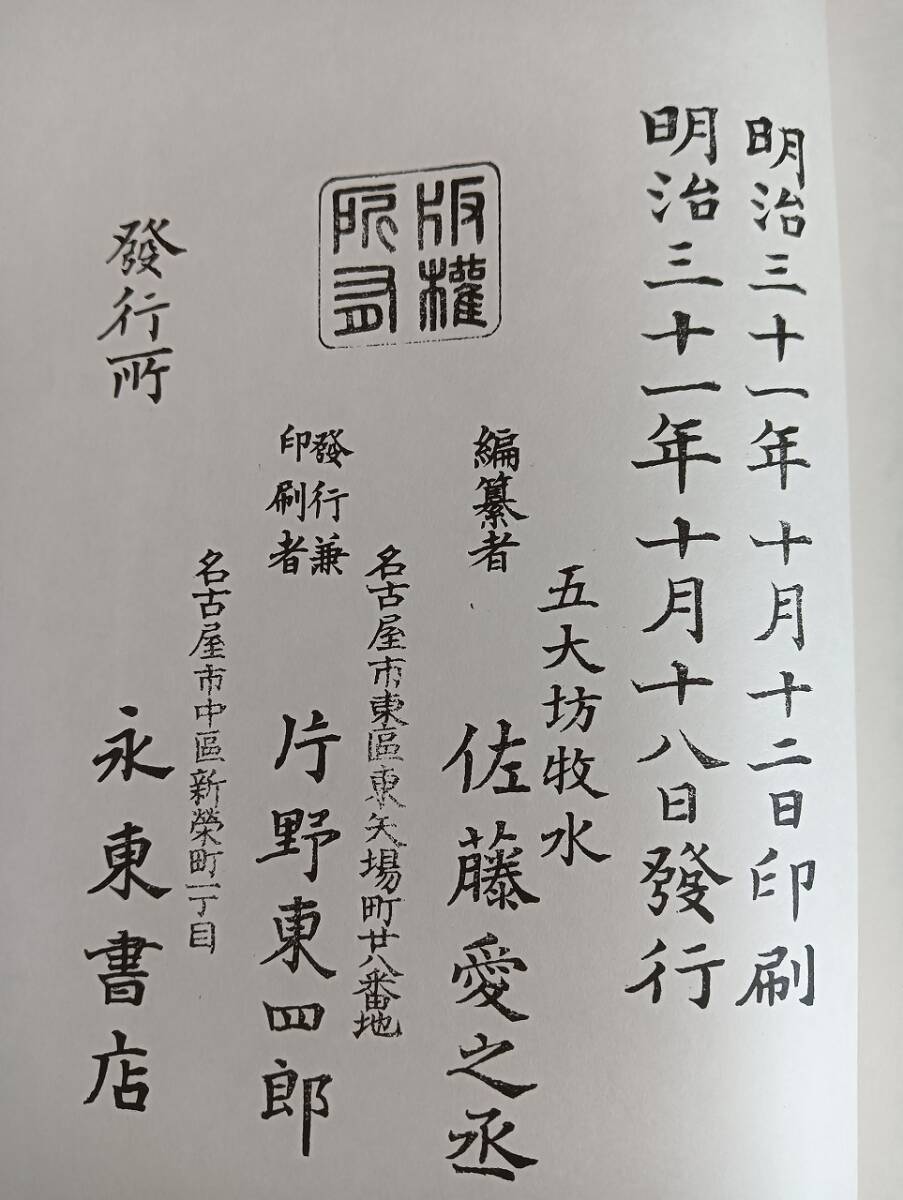 明治三十一年十月十二日印刷
明治三十一年十月十八日發行
版權
所有
五大坊牧水
編纂者
佐藤愛之丞
名古屋市東區東矢場町廿八番地
發行兼
印刷者
片野東四郎
名古屋市中區新榮町一丁目
發行所
永東書店